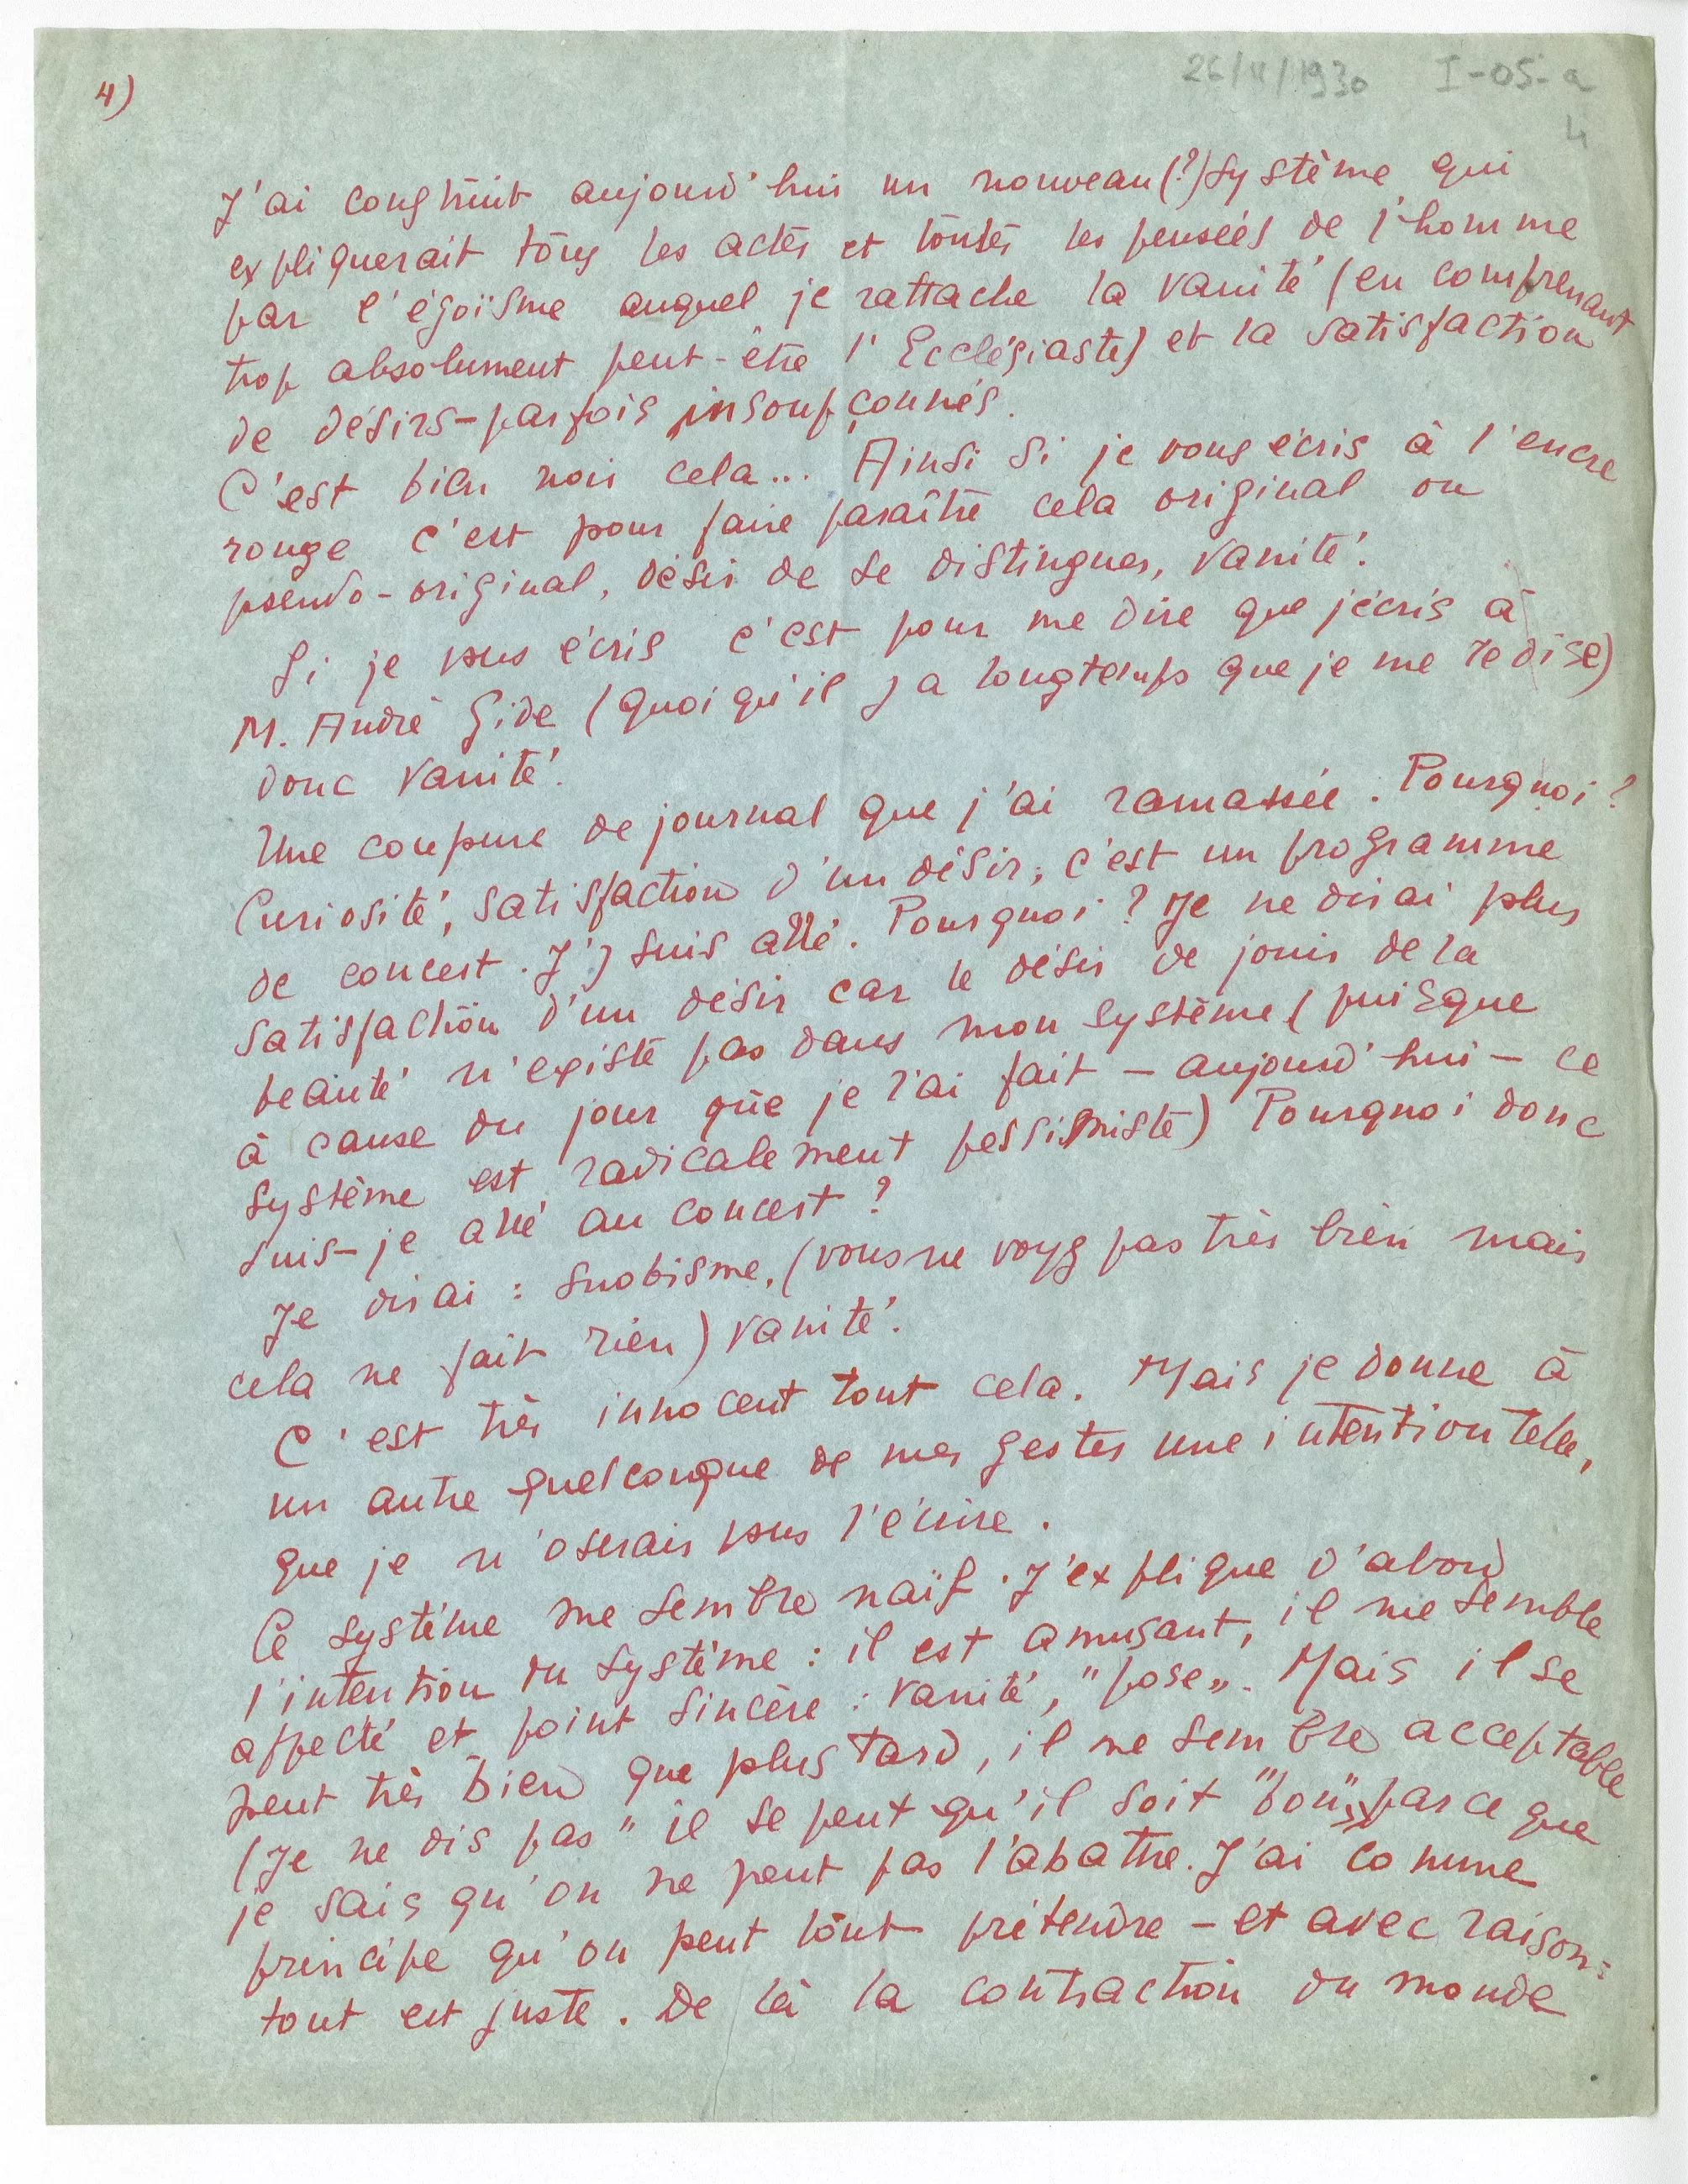 4)
26/11/1930 I-05-a
4
J'ai construit aujourd'hui un nouveau(?) système qui
expliquerait tous les actes et toutes les pensées de l'homme
par l'égoïsme auquel je rattache la vanité (en comprenant
trop absolument peut-être l'Ecclésiaste) et la satisfaction
de désirs-parfois insoupçonnés.
C'est bien noir cela... Ainsi si je vous écris à l'encre
rouge c'est pour faire paraître cela original ou
pseudo-original, désir de se distinguer, vanité.
Si je vous écris c'est pour me dire que j'écris à
M. André Gide (quoiqu'il y a longtemps que je me le dise)
donc vanité.
Une coupure de journal que j'ai ramassée. Pourquoi?
Curiosité, satisfaction d'un désir; c'est un programme
de concert. J'y suis allé. Pourquoi? Je ne dirai plus
satisfaction d'un désir car le désir de jouir de la
beauté n'existe pas dans mon système (puisque
à cause du jour que je l'ai fait - aujourd'hui - ce
système est radicalement pessimiste) Pourquoi donc
suis-je allé au concert?
Je dirai : snobisme, (vous ne voyez pas très bien mais
cela ne fait rien) vanité.
C'est très innocent tout cela. Mais je donne à
un autre quelconque de mes gestes une intention telle,
que je n'oserais vous l'écrire.
Ce système me semble naïf. J'explique d'abord
l'intention du système : il est amusant, il me semble
affecté et point sincère : vanité, "pose". Mais il se
peut très bien que plus tard, il me semble acceptable
(Je ne dis pas "il se peut qu'il soit "bon", parce que
je sais qu'on ne peut pas l'abattre. J'ai comme
principe qu'on peut tout prétendre - et avec raison:
tout est juste. De là la contraction du monde